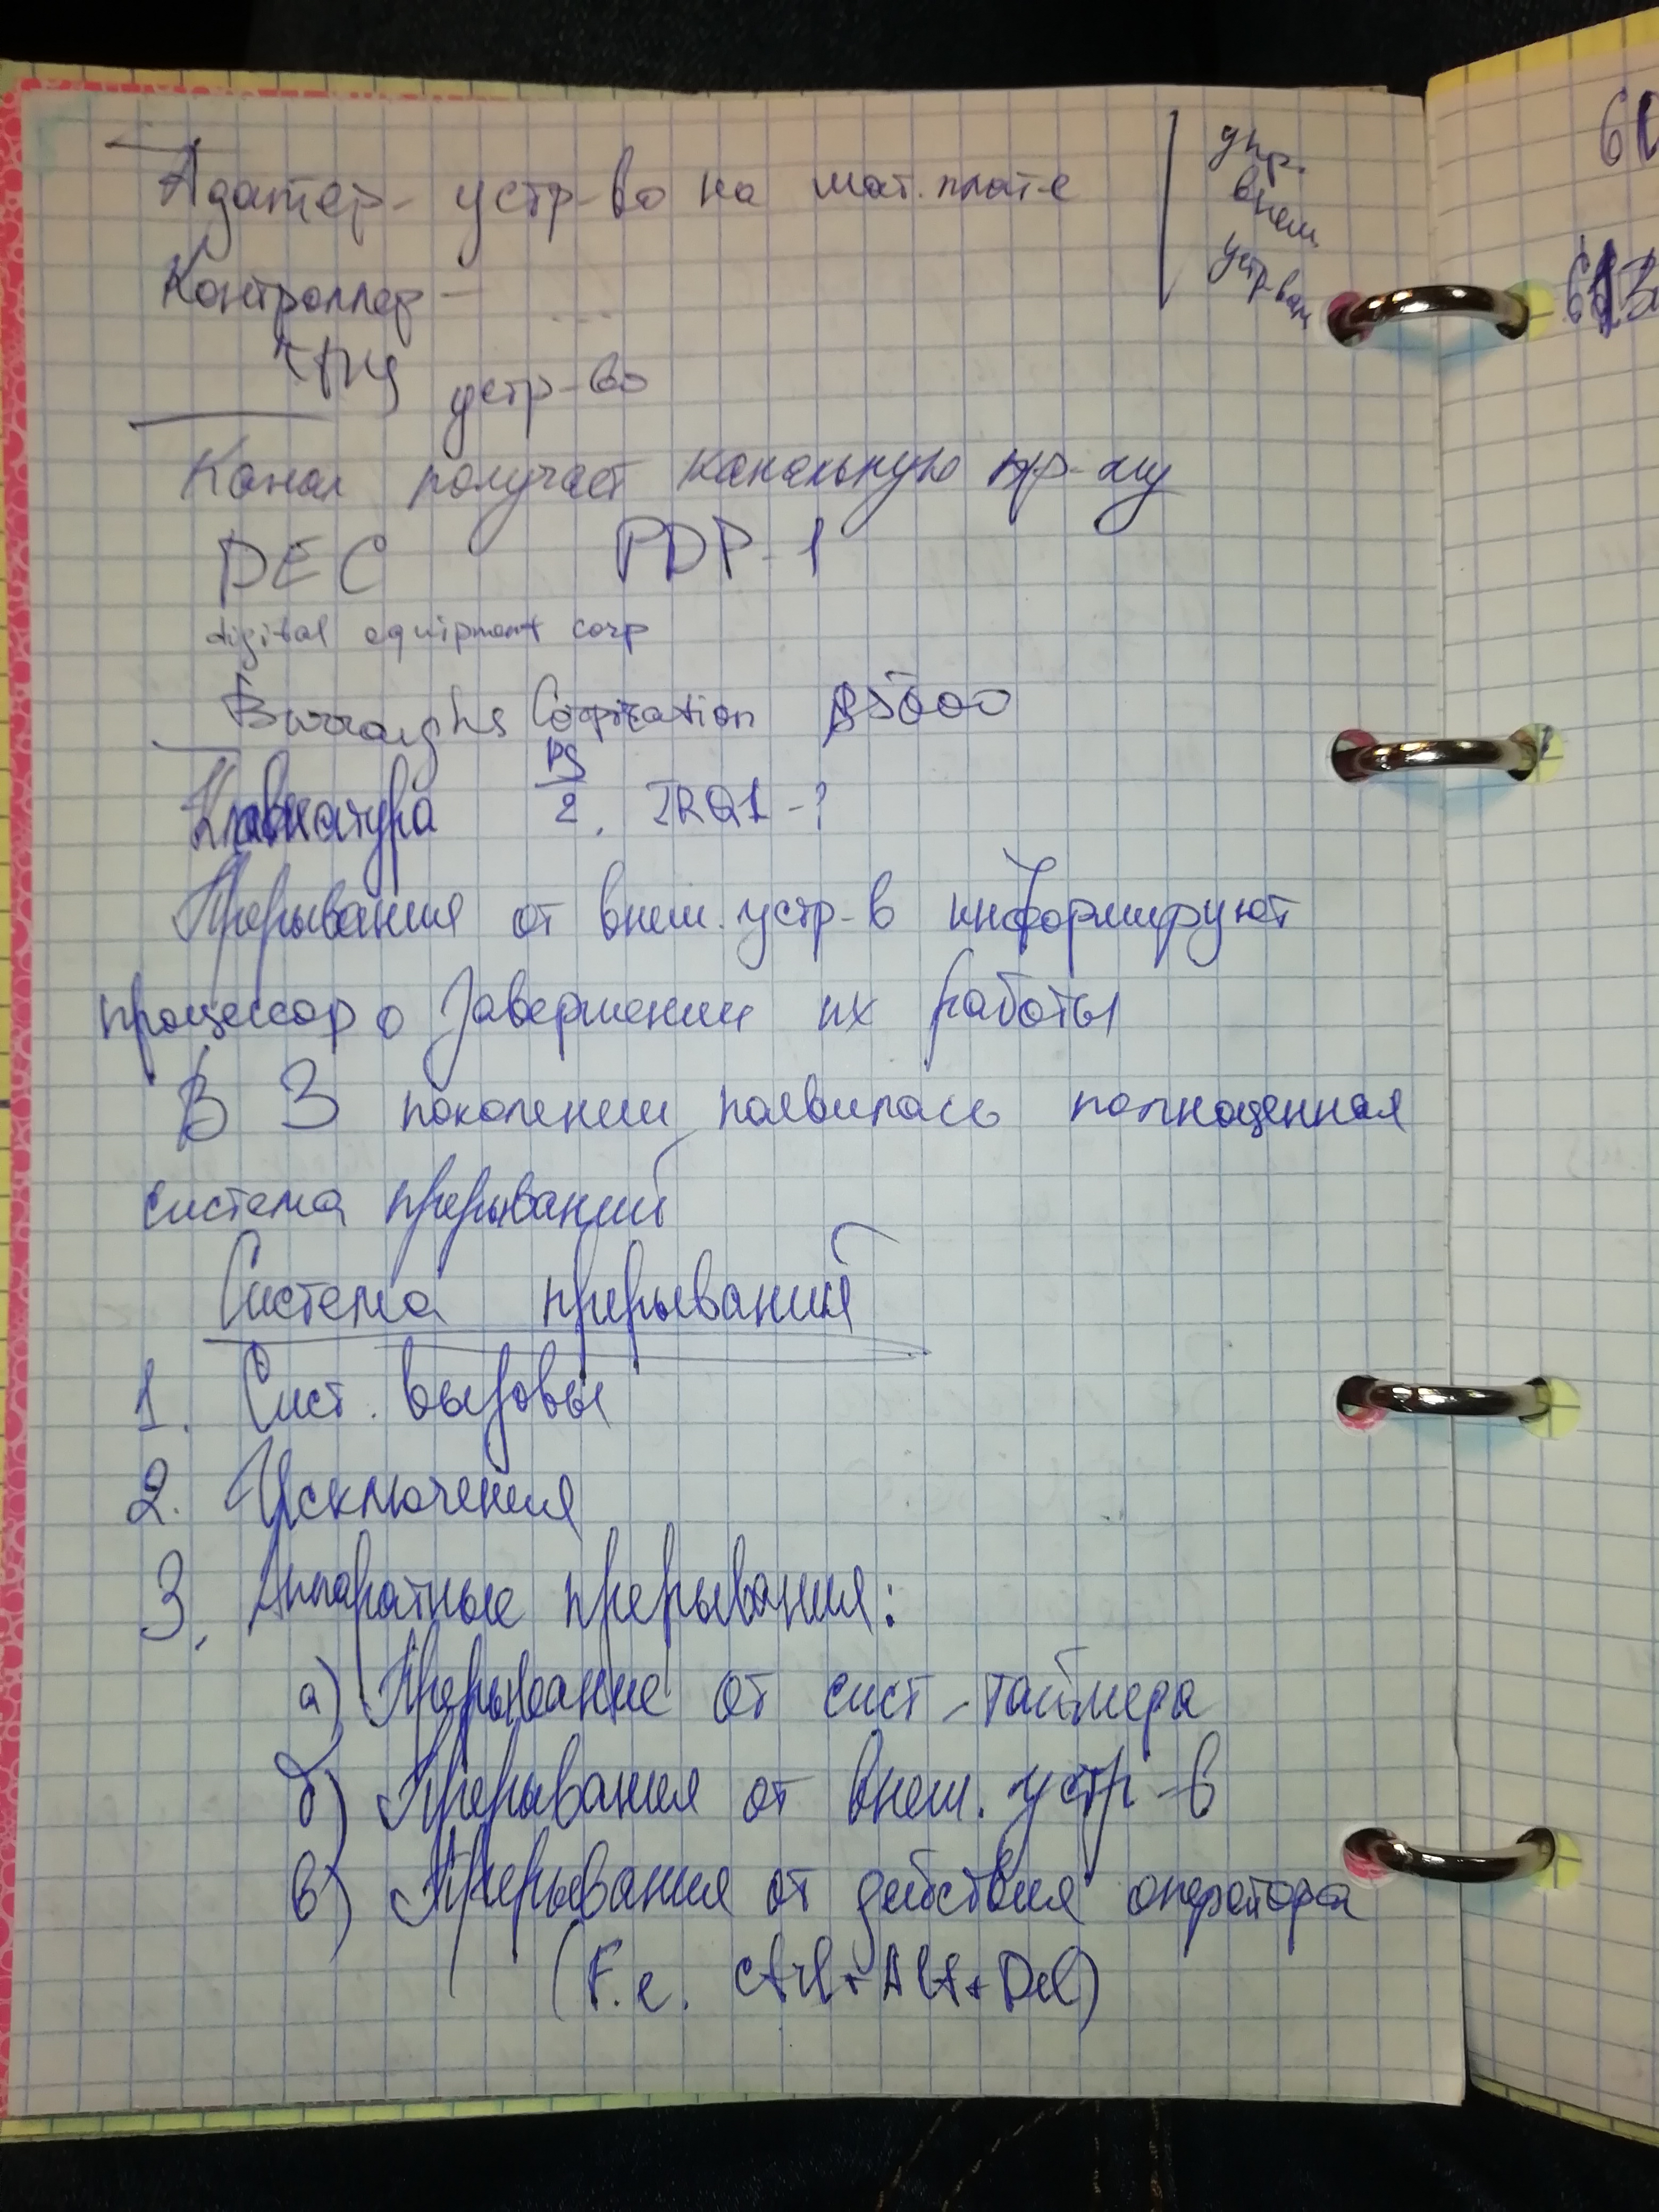 Адаптер - устр-во на мат. плате
упр.
внеш.
устр-вам
Контроллер - ...
устр-во
Канал получает канальную пр-му
DEC PDP-1
digital equipment corp
Burroughs Corporation B5000
Клавиатура PS/2, IRQ1 - ?
Прерывания от внеш. устр-в информируют
процессор о завершении их работы
В 3 поколении появилась полноценная
система прерываний
Система прерываний
1. Сист. вызовы
2. Исключения
3. Аппаратные прерывания:
а) Прерывание от сист. таймера
б) Прерывания от внеш. устр-в
в) Прерывания от действия оператора
(F.e. Ctrl+Alt+Del)